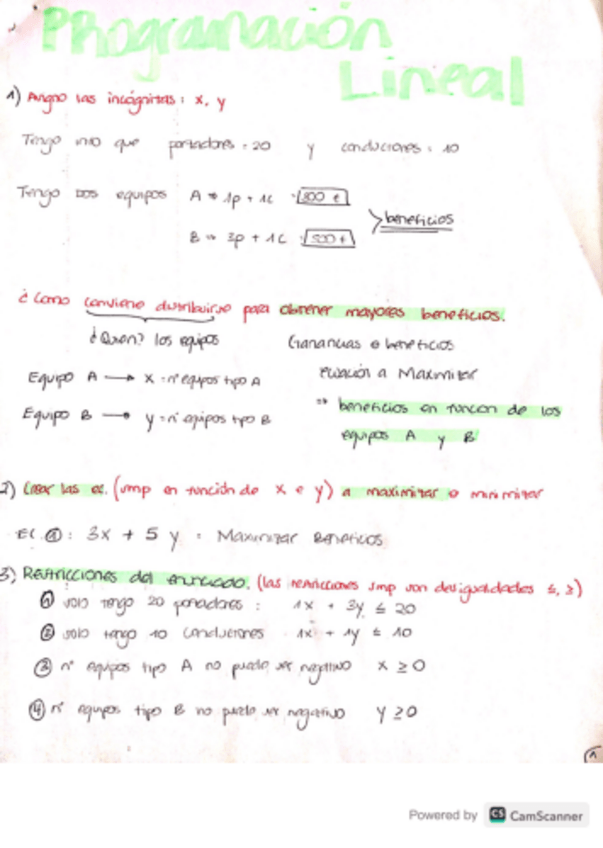 Programación
Lineal
1) Asigno las incógnitas: x, y
Tengo que portadores = 20 y conductores = 10
Tengo dos equipos A → 1p + 1c
beneficios
B → 3p + 1c
¿Como conviene distribuirse para obtener mayores beneficios.
¿Quien? los equipos Ganancias o beneficios
Equipo A → x = nº equipos tipo A
Equipo B → y = nº equipos tipo B
a Maximizar
⇒ beneficios en funcion de los
equipos A y B
2) Crear las ec. (smp en función de x e y) a maximizar o minimizar
Ec ①: 3x + 5y = Maximizar Beneficios
3) Restricciones del enunciado. (las restricciones smp son desigualdades ≤, ≥)
① solo tengo 20 portadores: 1x + 3y ≤ 20
② solo tengo 10 conductores 1x + 1y ≤ 10
③ nº equipos tipo A no puede ser negativo x ≥ 0
④ nº equipos tipo B no puede ser negativo y ≥ 0
1
Powered by CS CamScanner